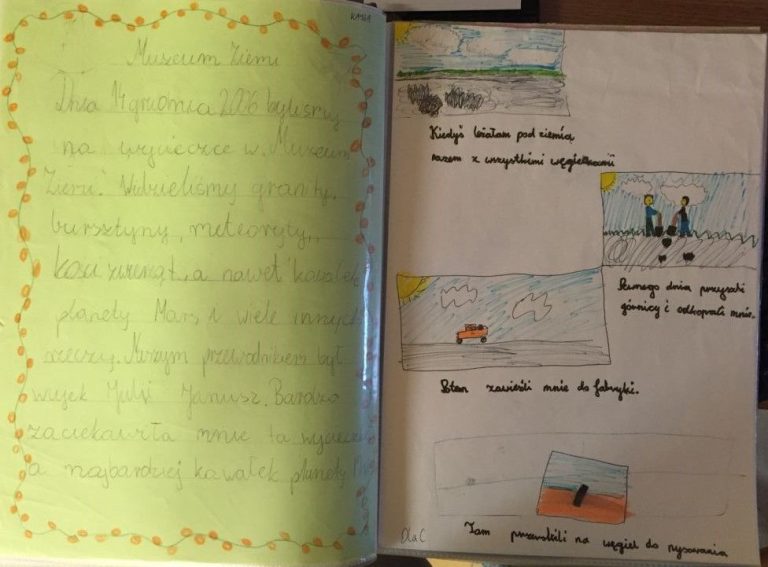 KASIA
Muzeum Ziemi
Dnia 14 grudnia 2006 byliśmy
na wycieczce w Muzeum
Ziemi. Widzieliśmy granity,
bursztyny, meteoryty,
kości zwierząt, a nawet kawałek
planety Mars i wiele innych
rzeczy. Naszym przewodnikiem był
wujek Julki Janusz. Bardzo
zaciekawiła mnie ta wycieczka
a najbardziej kawałek planety
Kiedyś leżałam pod ziemią,
razem z wszystkimi węgielkami
Pewnego dnia przyszli
górnicy i odkopali mnie.
Potem zawieźli mnie do fabryki.
Tam przerobili na węgiel do rysowania